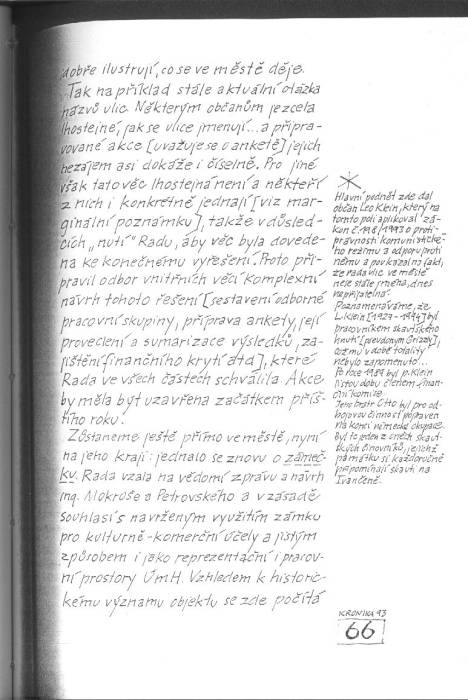 dobře ilustrují, co se ve městě děje.
Tak na příklad stále aktuální otázka
názvů ulic. Některým občanům je zcela
lhostejné, jak se ulice jmenují... a připra-
vované akce [uvažuje se o anketě] jejich
nezájem asi dokáže i číselně. Pro jiné
však tato věc lhostejná není a někteří
z nich i konkretně jednají [viz mar-
ginální poznámku], takže v důsled-
cích „nutí" Radu, aby věc byla dovede-
na ke konečnému vyřešení. Proto při-
pravil odbor vnitřních věcí komplexní
návrh tohoto řešení [sestavení odborné
pracovní skupiny, příprava ankety, její
provedení a sumarizace výsledků, za-
jištění finančního krytí atd], které
Rada ve všech částech schválila. Akce
by měla být uzavřena začátkem příš-
tího roku.
Zůstaneme ještě přímo ve městě, nyní
na jeho kraji: jednalo se znovu o zámeč-
ku. Rada vzala na vědomí zprávu a návrh
ing. Mokruše a Petrovského a v zásadě
souhlasí s navrženým využitím zámku
pro kulturně-komerční účely a jistým
způsobem i jako reprezentační i pracov-
ní prostory ÚmH. Vzhledem k historic-
kému významu objektu se zde počítá
Hlavní podnět zde dal
občan Leo Klein, který na
tomto poli aplikoval zá-
kon č. 198/1993 o proti-
právnosti komunistické-
ho režimu a odporu proti
němu a poukázal na fakt,
že řada ulic ve městě
nese stále jména, dnes
nepřijatelná.
Poznamenáváme, že
L. Klein [1927-1994] byl
pracovníkem skautského
hnutí [pseudonym Grizzly],
což mu v době totality
nebylo zapomenuto.
Po roce 1989 byl p. Klein
jistou dobu členem finan-
ční komise.
Jeho bratr Otto byl pro od-
bojovou činnost popraven
na konci německé okupace.
Byl to jeden z oněch skaut-
ských činovníků, jejichž
památku si každoročně
připomínají skauti na
Ivančeně.
KRONIKA 93
66